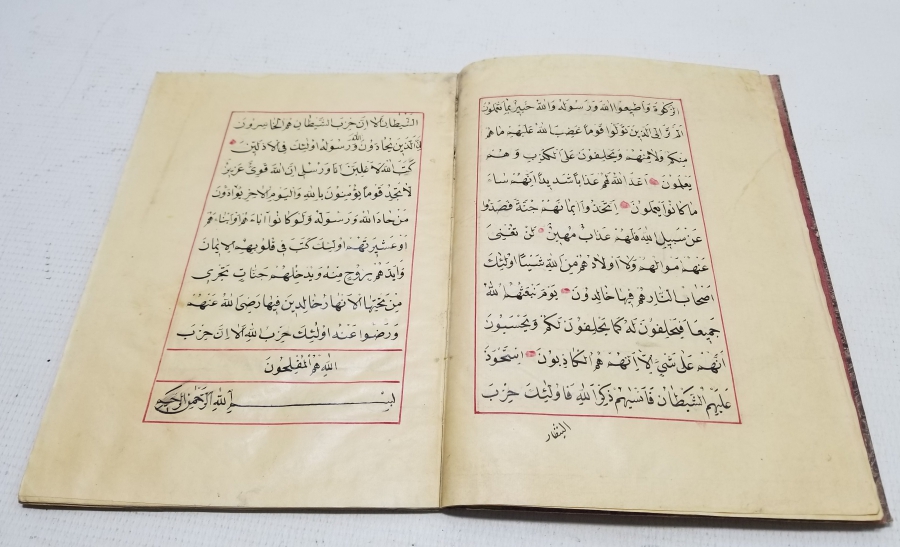 الزكوة واطيعوا الله ورسوله والله خبير بما تعملون
الم تر الى الذين تولوا قوما غضب الله عليهم ما هم
منكم ولا منهم ويحلفون على الكذب وهم
يعلمون اعد الله لهم عذابا شديدا انهم ساء
ما كانوا يعملون اتخذوا ايمانهم جنة فصدوا
عن سبيل الله فلهم عذاب مهين لن تغنى
عنهم اموالهم ولا اولادهم من الله شيئا اولئك
اصحاب النار هم فيها خالدون يوم يبعثهم الله
جميعا فيحلفون له كما يحلفون لكم ويحسبون
انهم على شئ الا انهم هم الكاذبون استحوذ
عليهم الشيطان فانسيهم ذكر الله اولئك حزب
الشيطان الا ان حزب الشيطان هم الخاسرون
ان الذين يحادون الله ورسوله اولئك في الاذلين
كتب الله لاغلبن انا ورسلي ان الله قوي عزيز
لا تجد قوما يؤمنون بالله واليوم الاخر يوادون
من حاد الله ورسوله ولو كانوا اباءهم او ابناءهم
او عشيرتهم اولئك كتب في قلوبهم الايمان
وايدهم بروح منه ويدخلهم جنات تجري
من تحتها الانهار خالدين فيها رضي الله عنهم
ورضوا عنه اولئك حزب الله الا ان حزب
الله هم المفلحون
بسم الله الرحمن الرحيم